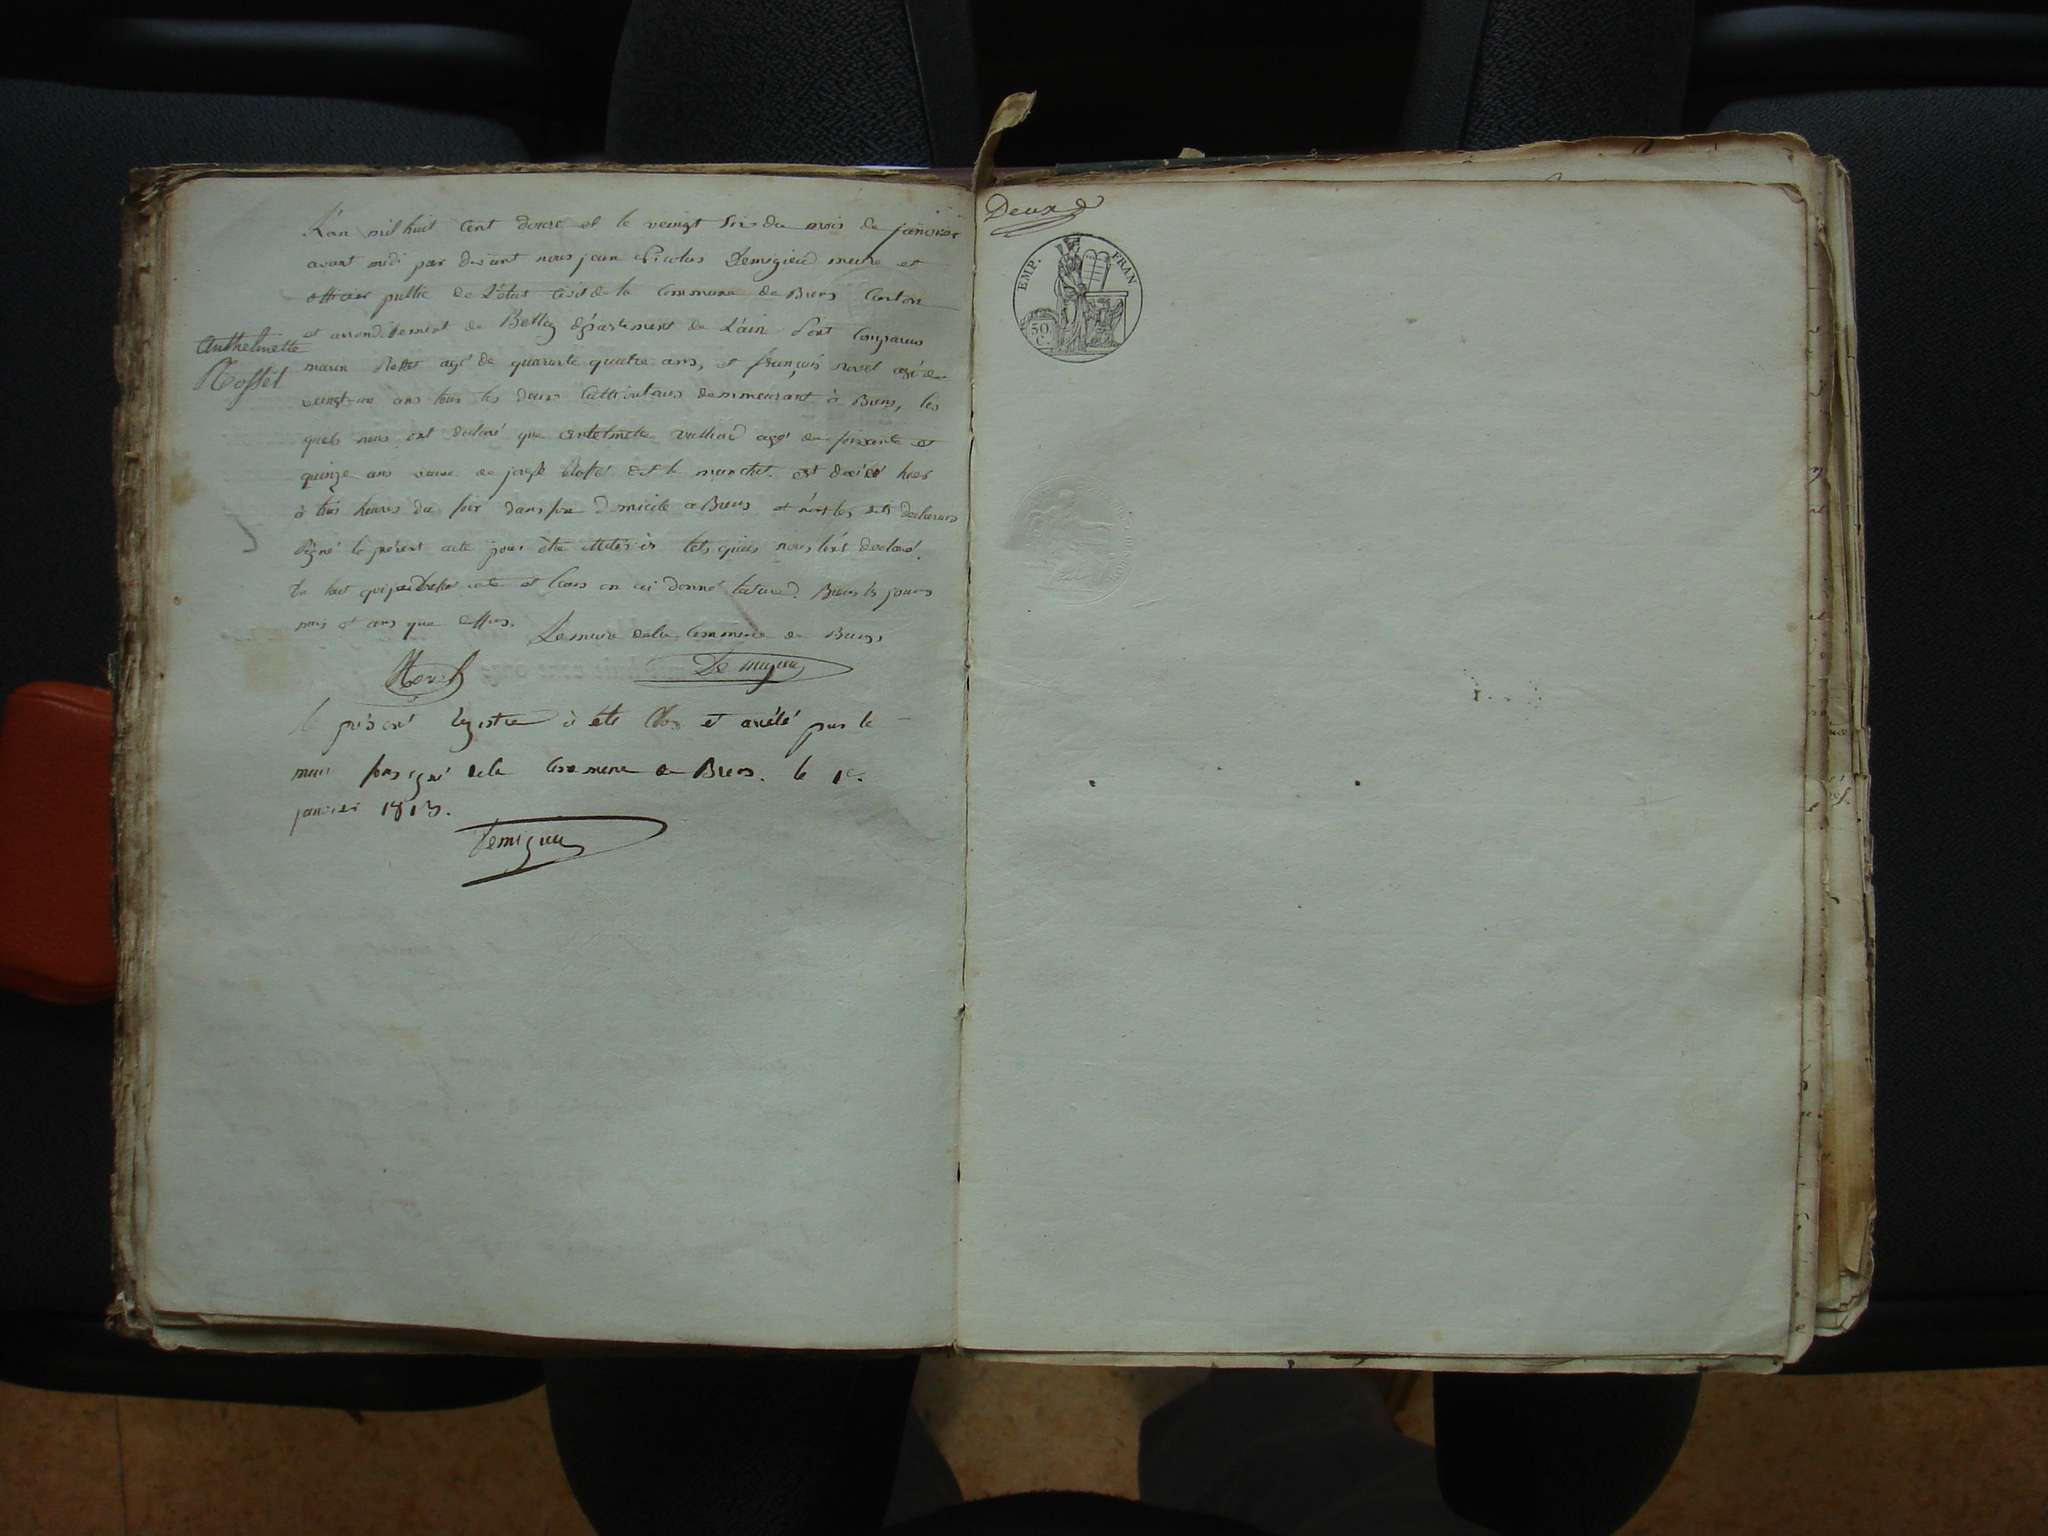 L'an mil huit cent douze et le veingt six du mois de janvier
avant midi par devant nous jean Nicolas Demigieu maire et
officier public de L'état Civil de la Commune de Brens Canton
et arrondissement de Belley département de L'ain Sont Comparus
Anthelmette
Rosset
marin Rosset agé de quarante quatre ans, et françois novel agé de
veingt un ans tous les deux Cultivateurs demmeurant à Brens, les
quels nous ont declaré que antelmette vallind agé de soixante et
quinze ans veuve de joseph Rosset dit le manchot est décédé hier
à trois heures du soir dans son domicile a Brens et n'ont les dits declarans
Signé le présent acte pour être
tels quils nous l'ont declaré.
Du tout
acte et Leurs en ai donné lecture. Brens les jours
mois et ans que dessus.
Le maire de la Commune de Brens
Novel
Demigieu
le présent Registre à été Clos et arrêté par le
maire soussigné de la Commune de Brens. le 1er
janvier 1813.
Demigieu
Deux
EMP. FRAN
50
C.